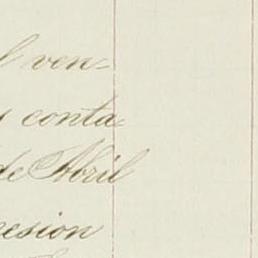 l ven-
s conta
de Abril
nesion